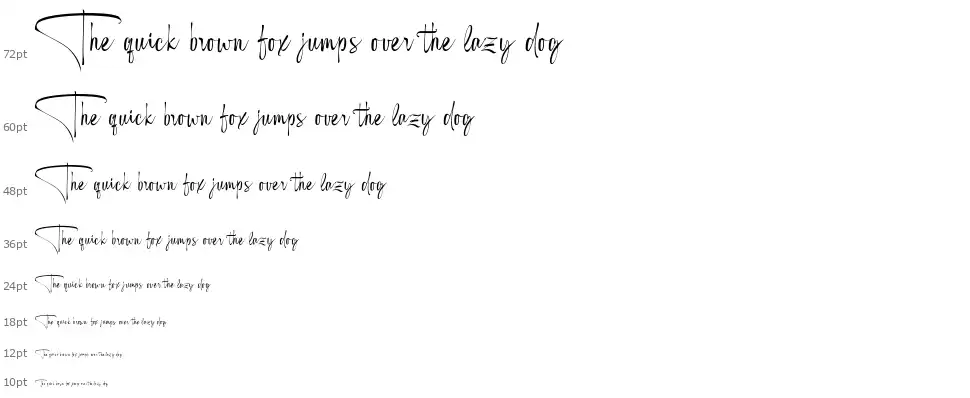 72pt The quick brown fox jumps over the lazy dog
60pt The quick brown fox jumps over the lazy dog
48pt The quick brown fox jumps over the lazy dog
36pt The quick brown fox jumps over the lazy dog
24pt The quick brown fox jumps over the lazy dog
18pt The quick brown fox jumps over the lazy dog
12pt The quick brown fox jumps over the lazy dog
10pt The quick brown fox jumps over the lazy dog